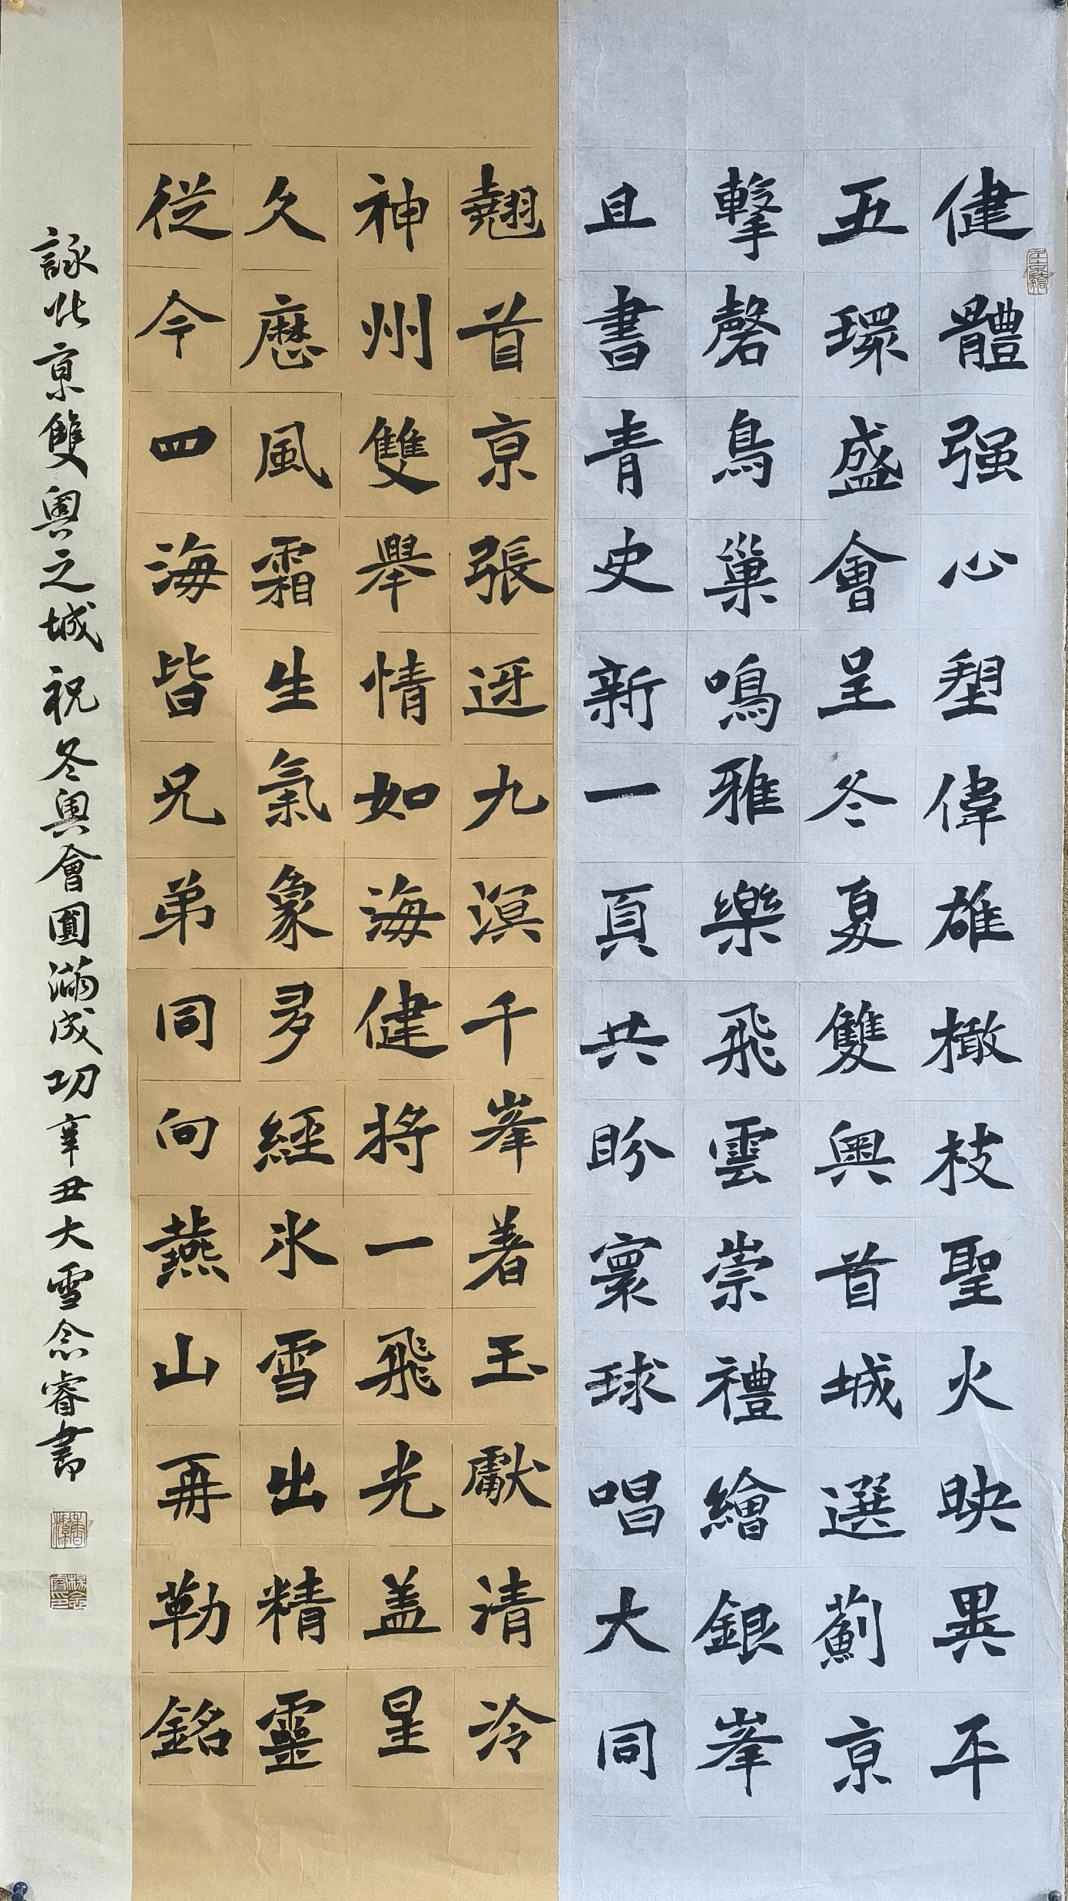 健體强心塑偉雄橄枝聖火映異平
五環盛會呈冬夏雙奥首城選薊京
擊磬鳥巢鳴雅樂飛雲崇禮繪銀峯
且書青史新一頁共盼寰球唱大同
翹首京張迓九溟千峯着玉獻清泠
神州雙舉情如海健將一飛光盖星
久歷風霜生氣象多經冰雪出精靈
從今四海皆兄弟同向燕山再勒銘
詠北京雙奥之城祝冬奥會圓滿成功辛丑大雪念睿書